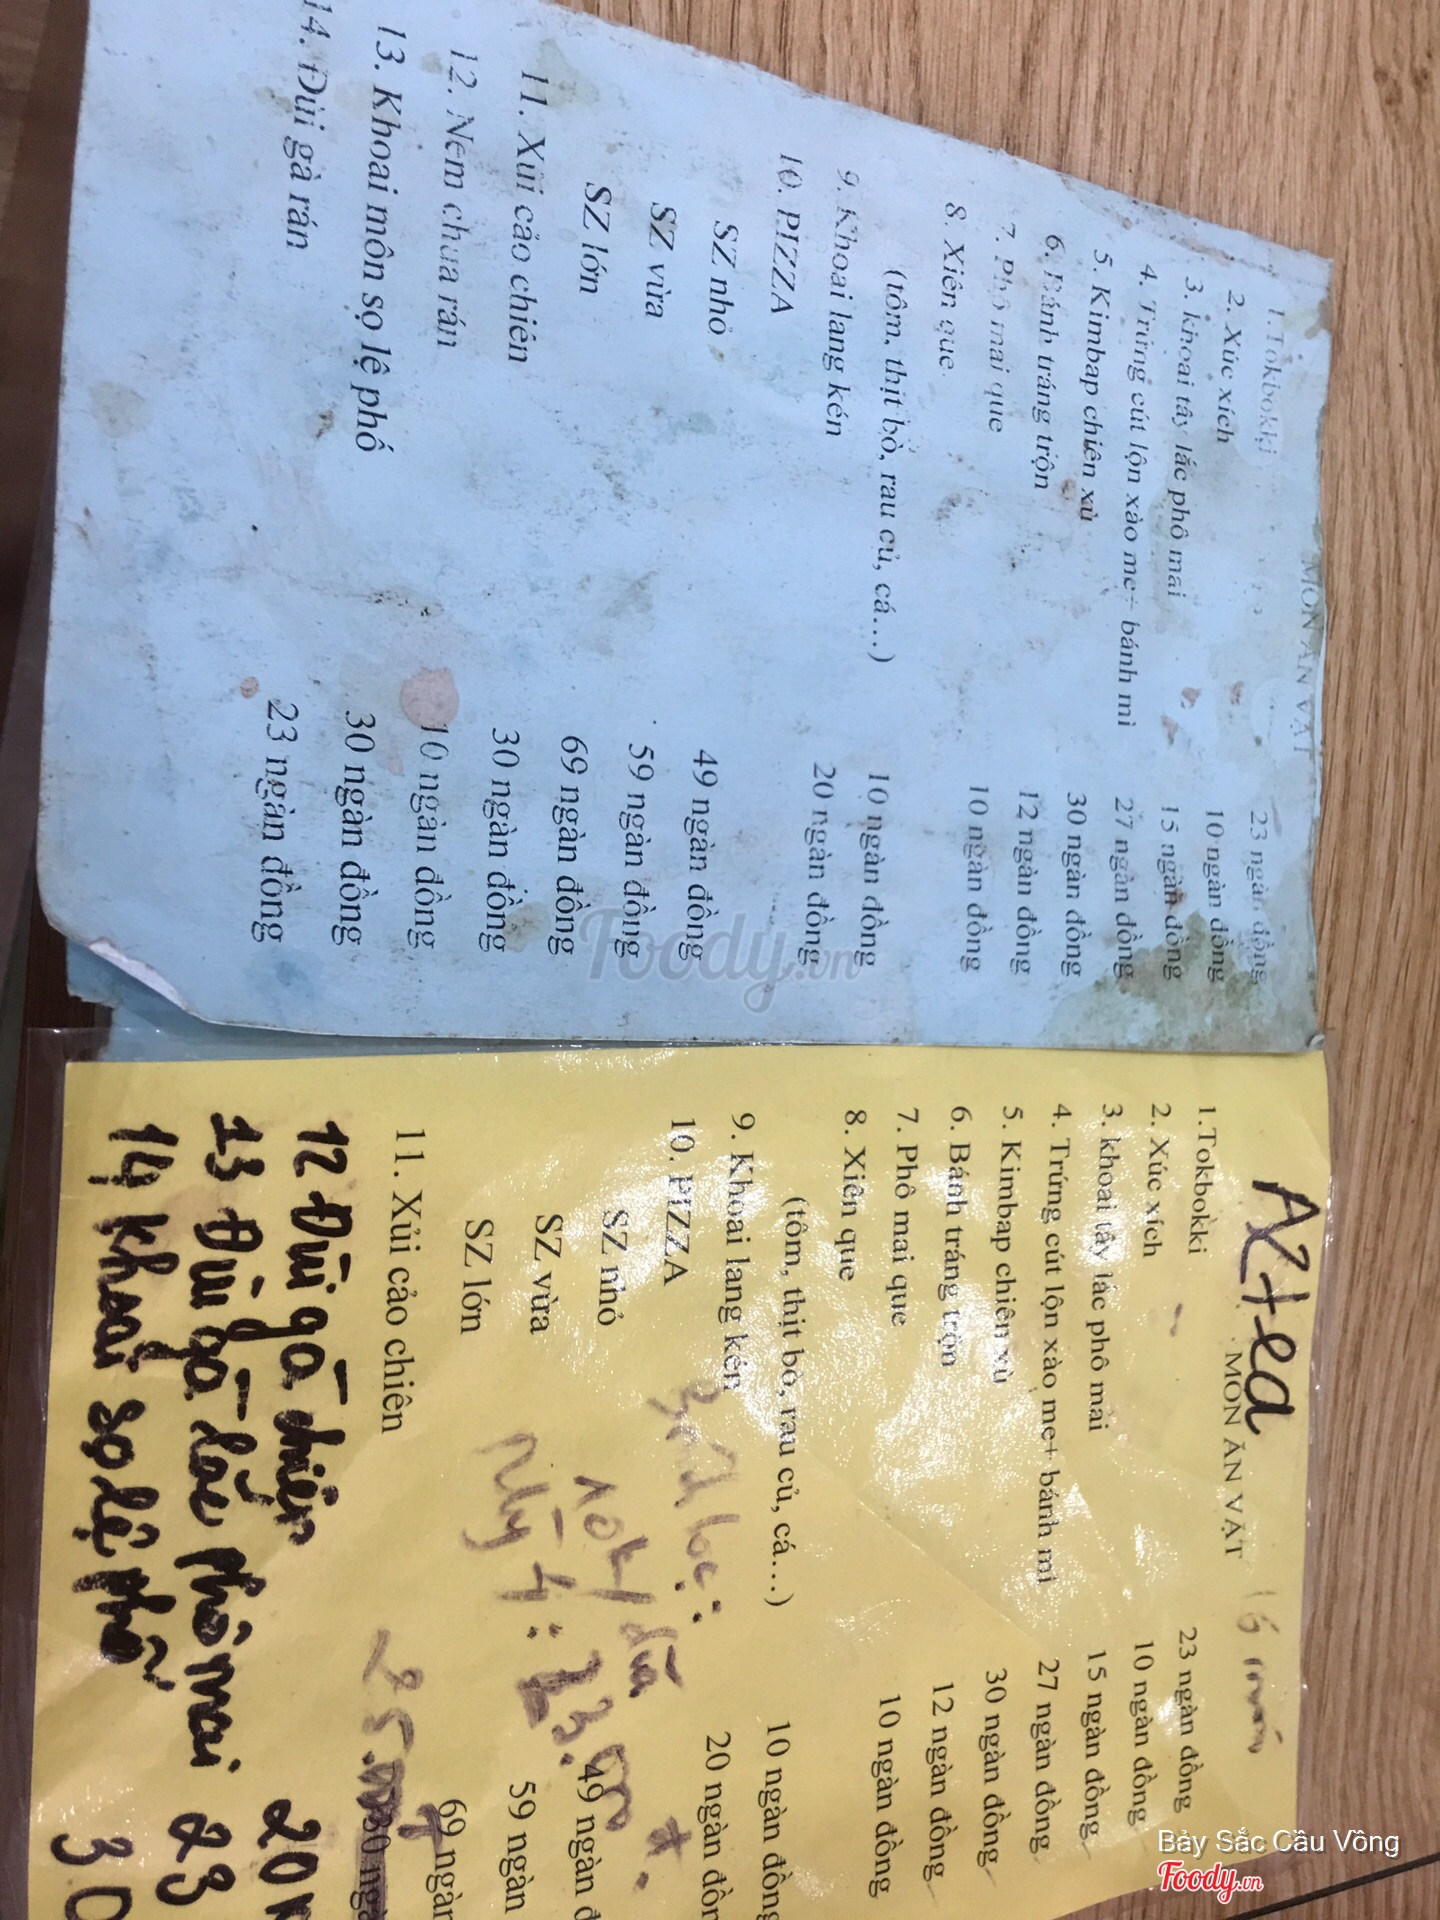 MÓN ĂN VẶT
1.Tokbokki
23 ngàn đồng
2. Xúc xích
10 ngàn đồng
3. khoai tây lắc phô mai
15 ngàn đồng
4. Trứng cút lộn xào me+ bánh mì
27 ngàn đồng
5. Kimbap chiên xù
30 ngàn đồng
6. Bánh tráng trộn
12 ngàn đồng
7. Phô mai que
10 ngàn đồng
8. Xiên que
(tôm, thịt bò, rau củ, cá…)
10 ngàn đồng
9. Khoai lang kén
20 ngàn đồng
10. PIZZA
SZ nhỏ
49 ngàn đồng
SZ vừa
59 ngàn đồng
SZ lớn
69 ngàn đồng
11. Xủi cảo chiên
30 ngàn đồng
12. Nem chua rán
10 ngàn đồng
13. Khoai môn sọ lệ phố
30 ngàn đồng
14. Đùi gà rán
23 ngàn đồng
Foody.vn
AZtea
MÓN ĂN VẶT
1.Tokbokki
23 ngàn đồng
2. Xúc xích
10 ngàn đồng
3. khoai tây lắc phô mai
15 ngàn đồng
4. Trứng cút lộn xào me+ bánh mì
27 ngàn đồng
5. Kimbap chiên xù
30 ngàn đồng
6. Bánh tráng trộn
12 ngàn đồng
7. Phô mai que
10 ngàn đồng
8. Xiên que
(tôm, thịt bò, rau củ, cá…)
10 ngàn đồng
9. Khoai lang kén
20 ngàn đồn
10. PIZZA
SZ nhỏ
49 ngàn đ
SZ vừa
59 ngàn
SZ lớn
69 ngàn
11. Xủi cảo chiên
30 ngà
12 Đùi gà chiên 20k
13 Đùi gà lắc phô mai 23
14 khoai sọ lệ phố 30
Bảy Sắc Cầu Vồng
Foody.vn